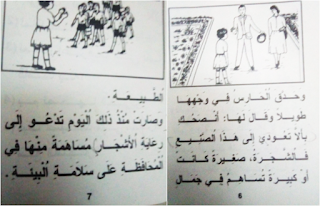 وَحَدَّقَ الْحَارِسُ فِي وَجْهِهَا
طَوِيلاً وَقَالَ لَهَا: أَنْصَحُكِ
بِأَلاَّ تَعُودِي إِلَى هٰذَا الصَّنِيعِ
فَالشَّجَرَةُ، صَغِيرَةً كَانَتْ
أَوْ كَبِيرَةً تُسَاهِمُ فِي جَمَالِ
6
الطَّبِيعَةِ.
وَصَارَتْ مُنْذُ ذٰلِكَ الْيَوْمِ تَدْعُو إِلَى
رِعَايَةِ الْأَشْجَارِ مُسَاهَمَةً مِنْهَا فِي
الْمُحَافَظَةِ عَلَى سَلاَمَةِ الْبِيئَةِ.
7